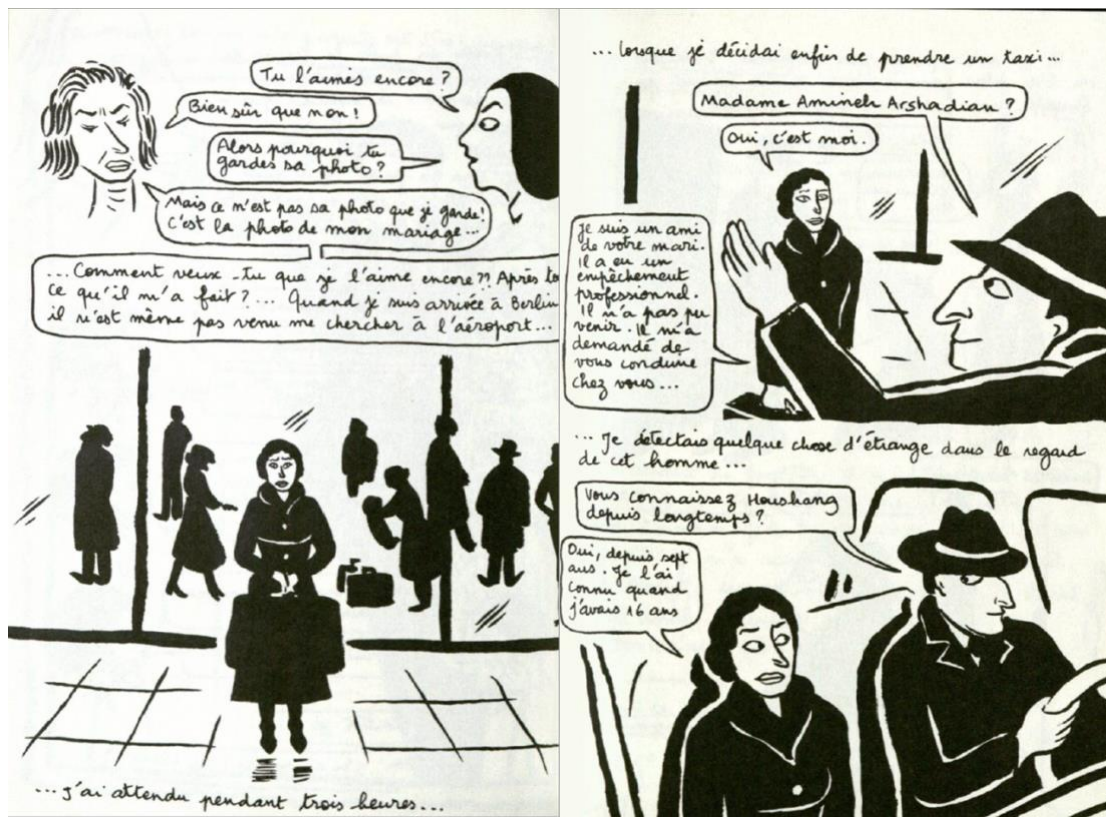 Tu l'aimes encore?
Bien sûr que non!
Alors pourquoi tu
gardes sa photo?
Mais ce n'est pas sa photo que je garde!
C'est la photo de mon mariage...
...Comment veux-tu que je l'aime encore?! Après to
ce qu'il m'a fait?... Quand je suis arrivée à Berlin
il n'est même pas venu me chercher à l'aéroport...
...J'ai attendu pendant trois heures...
...lorsque je décidai enfin de prendre un taxi...
Madame Amineh Arshadian?
Oui, c'est moi.
Je suis un ami
de votre mari.
Il a eu un
empêchement
professionnel.
Il n'a pas pu
venir. Il m'a
demandé de
vous conduire
chez vous...
...Je détectais quelque chose d'étrange dans le regard
de cet homme...
Vous connaissez Houshang
depuis longtemps?
Oui, depuis sept
ans. Je l'ai
connu quand
j'avais 16 ans